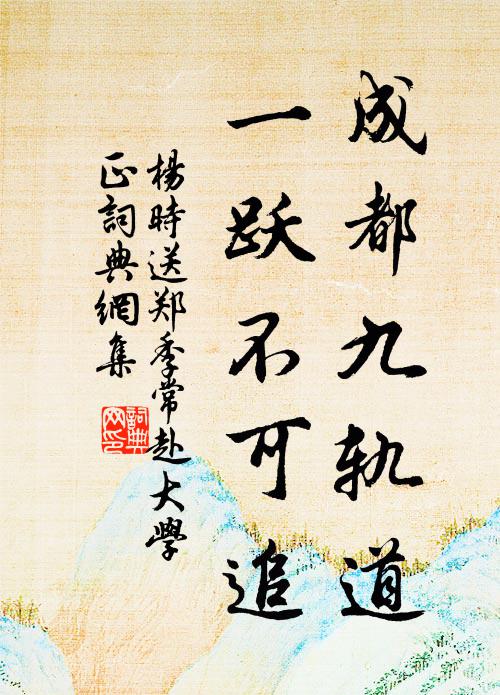 成都九轨道
一跃不可追
楊時送郑季常赴大學
正詞典網集
詞典网印